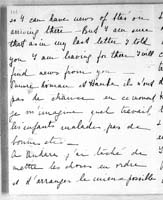 so I can have news of Steo on
arriving there – But I am sure
that as in my last letter I told
you I am leaving for there I will
find news from you
Pauvre Roman et Hanka ils n'ont
pas de chance en ce moment
je m'imagine quel travail
les enfants malades pas de
bonnes etc –
à Ankara j'ai tâché de
mettre les choses en ordre
et d'arranger le mieux possible